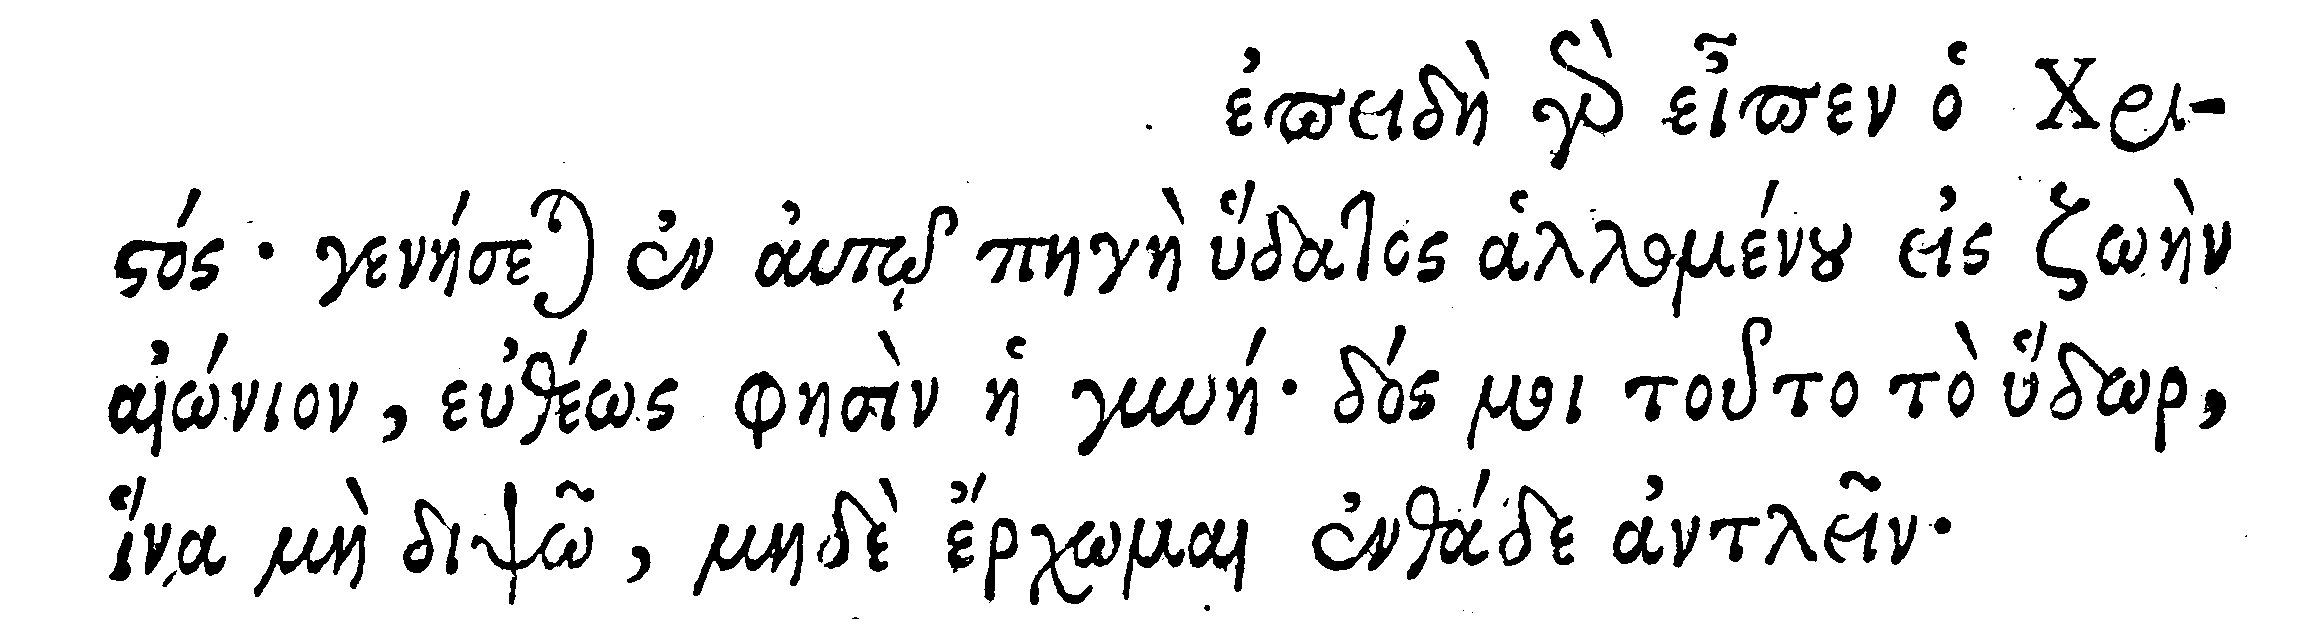 ἐπειδὴ γὰρ εἶπεν ὁ Χρι-
ϛός· γενήσεται ἐν ἀυτῷ πηγὴ ὕδατος ἁλλομένου εἰς ζωὴν
αἰώνιον, εὐθέως φησὶν ἡ γυνή· δός μοι τοῦτο τὸ ὕδωρ,
ἵνα μὴ διψῶ, μηδὲ ἔρχωμαι ἐνθάδε ἀντλεῖν·